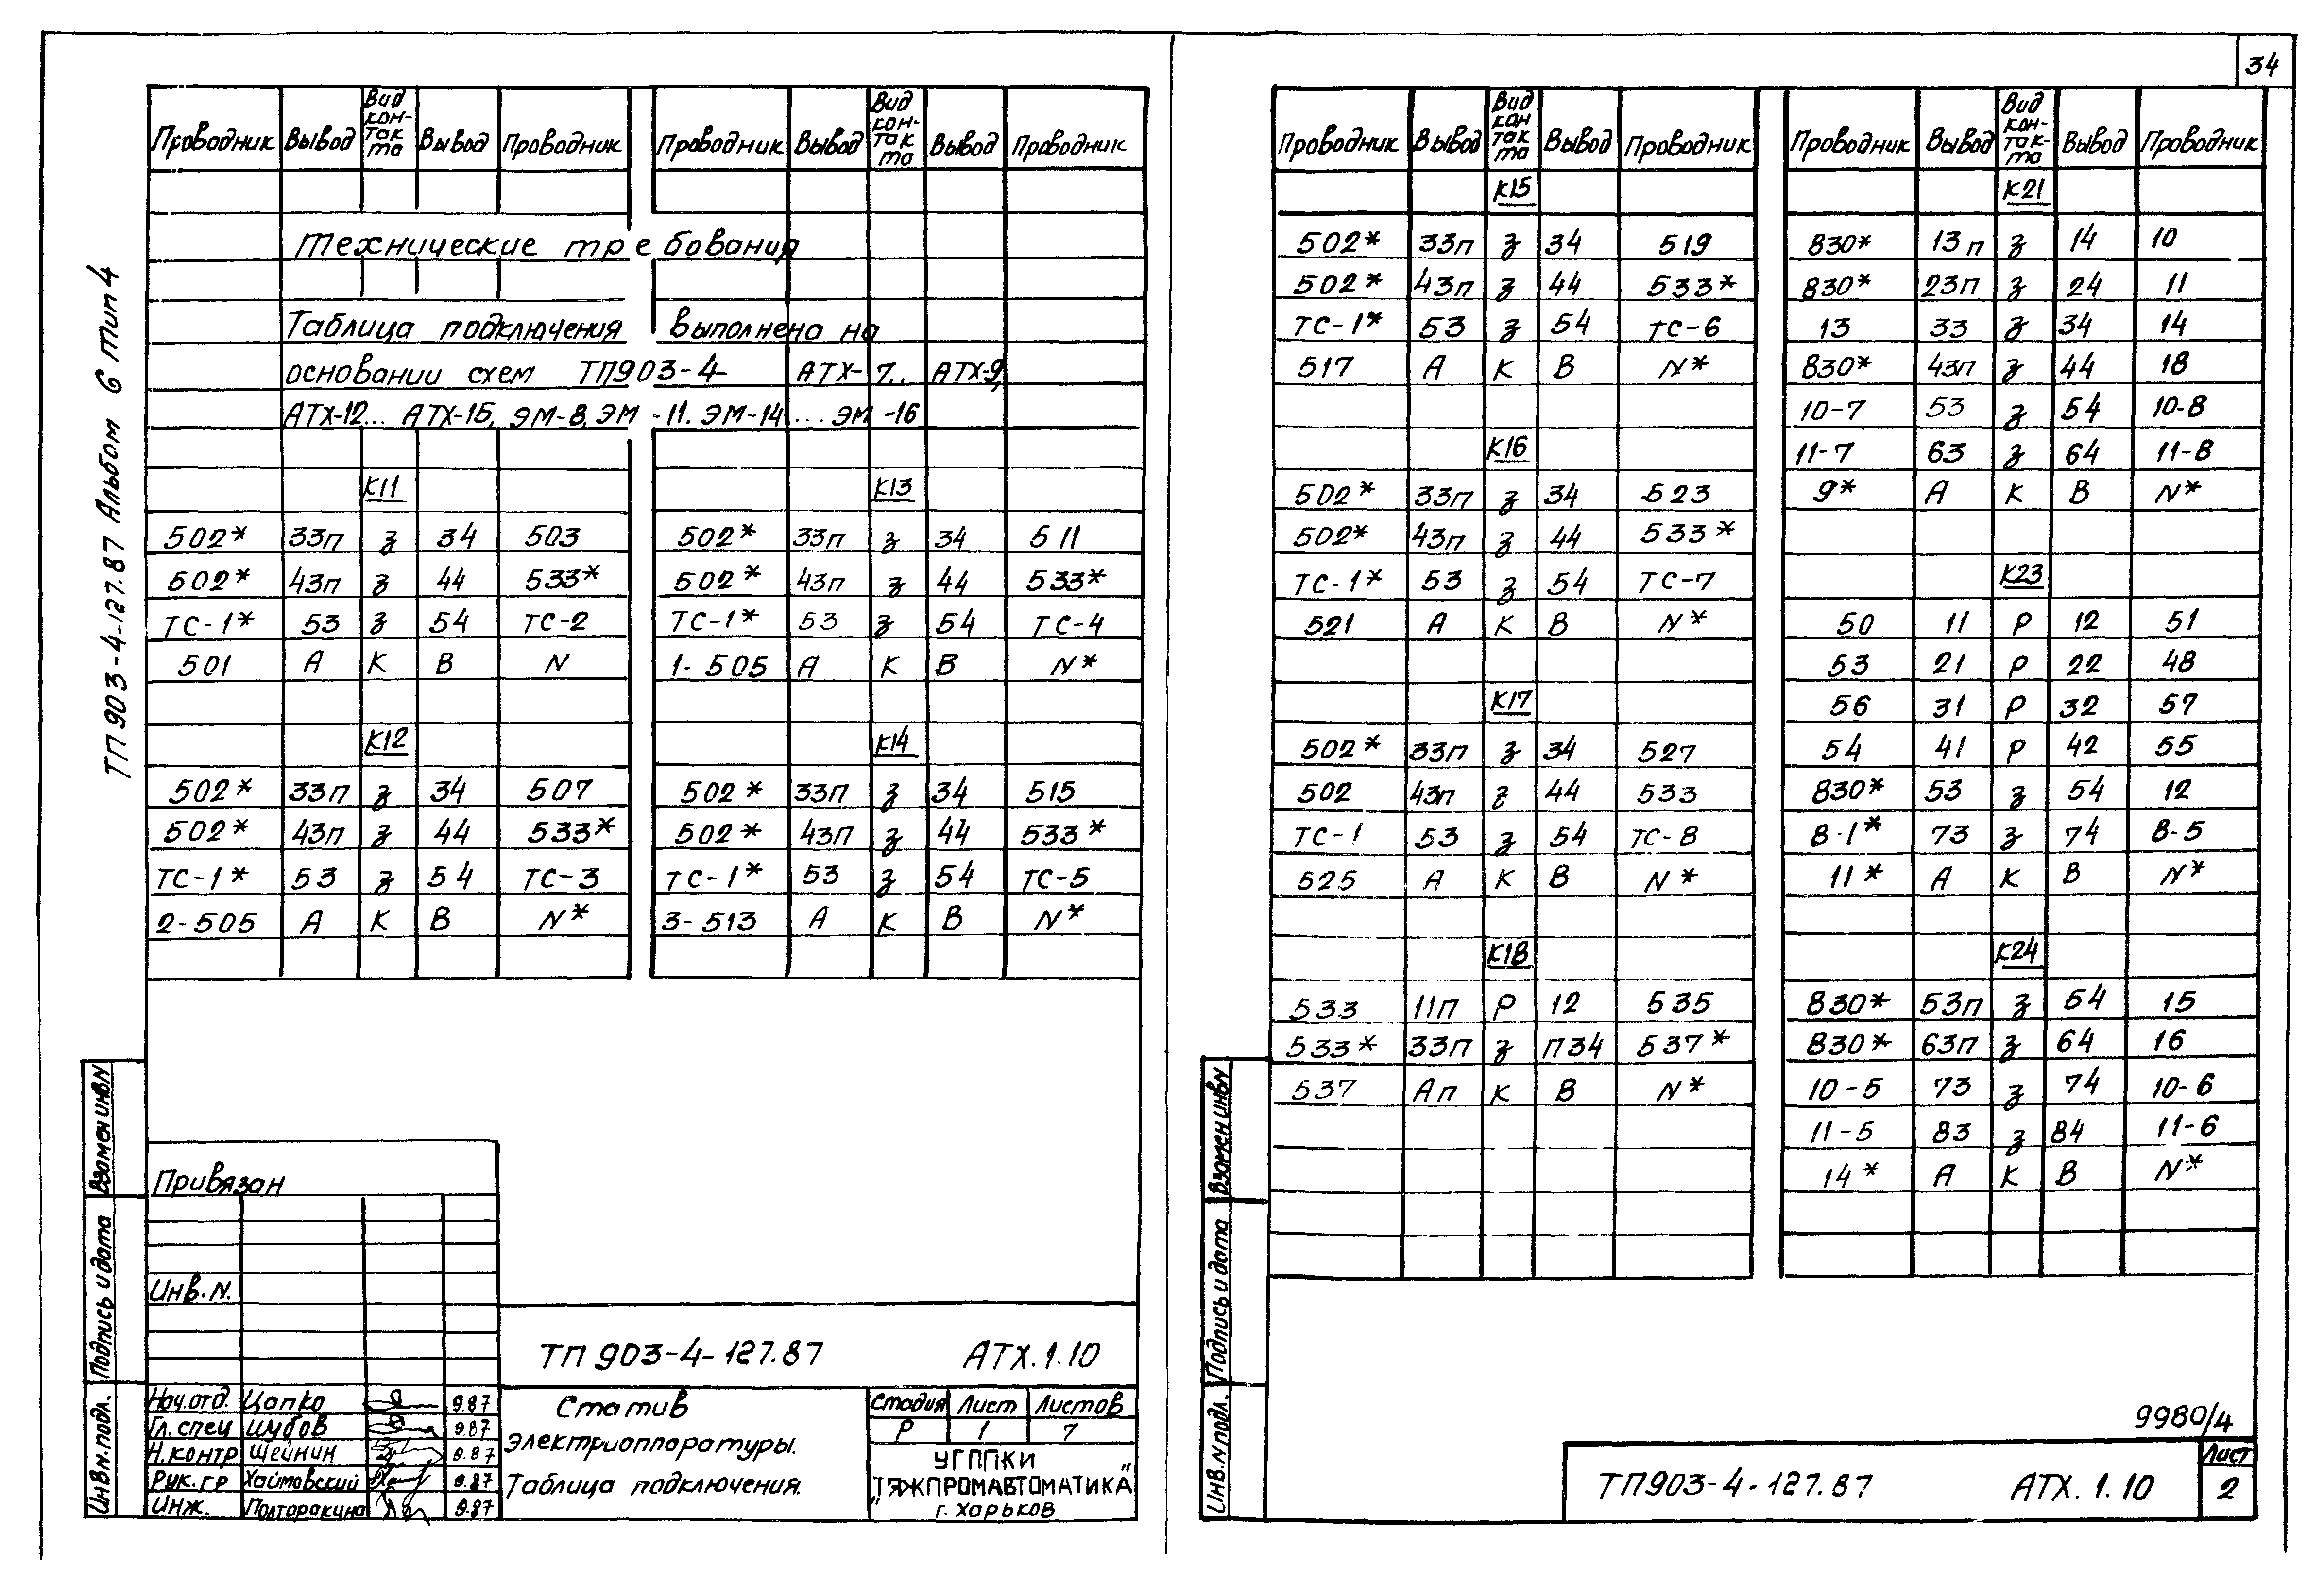 34
ТП 903-4-127.87 Альбом 6 тип 4
Проводник Вывод Вид кон-так та Вывод Проводник Проводник Вывод Вид кон-так та Вывод Проводник
Технические требования
Таблица подключения выполнена на
основании схем ТП903-4 АТХ-7.. АТХ-9,
АТХ-12... АТХ-15, ЭМ-8, ЭМ-11. ЭМ-14... ЭМ-16
К11
502* 33п з 34 503
502* 43п з 44 533*
ТС-1* 53 з 54 ТС-2
501 А К В N
К12
502* 33п з 34 507
502* 43п з 44 533*
ТС-1* 53 з 54 ТС-3
2-505 А К В N*
К13
502* 33п з 34 511
502* 43п з 44 533*
ТС-1* 53 з 54 ТС-4
1-505 А К В N*
К14
502* 33п з 34 515
502* 43п з 44 533*
ТС-1* 53 з 54 ТС-5
3-513 А К В N*
Привязан
Инв.N.
ТП 903-4-127.87 АТХ.1.10
Нач.отд. Цапко 9.87
Гл.спец Шубов 9.87
Н.контр Шейнин 9.87
Рук.гр Хаймовский 9.87
Инж. Полторакина 9.87
Статив
Электроаппаратуры.
Таблица подключения.
Стадия Лист Листов
Р 1 7
УГППКИ
"ТЯЖПРОМАВТОМАТИКА"
г. Харьков
Взамен инв.N
Подпись и дата
Инв.N.подл.
Проводник Вывод Вид кон так та Вывод Проводник Проводник Вывод Вид кон-так-та Вывод Проводник
К15
502* 33п з 34 519
502* 43п з 44 533*
ТС-1* 53 з 54 ТС-6
517 А К В N*
К16
502* 33п з 34 523
502* 43п з 44 533*
ТС-1* 53 з 54 ТС-7
521 А К В N*
К17
502* 33п з 34 527
502 43п з 44 533
ТС-1 53 з 54 ТС-8
525 А К В N*
К18
533 11п Р 12 535
533* 33п з п34 537*
537 Ап К В N*
К21
830* 13п з 14 10
830* 23п з 24 11
13 33 з 34 14
830* 43п з 44 18
10-7 53 з 54 10-8
11-7 63 з 64 11-8
9* А К В N*
К23
50 11 Р 12 51
53 21 Р 22 48
56 31 Р 32 57
54 41 Р 42 55
830* 53 з 54 12
8-1* 73 з 74 8-5
11* А К В N*
К24
830* 53п з 54 15
830* 63п з 64 16
10-5 73 з 74 10-6
11-5 83 з 84 11-6
14* А К В N*
Взамен инв.N
Подпись и дата
Инв.N подл.
9980/4
ТП903-4-127.87 АТХ.1.10
Лист
2